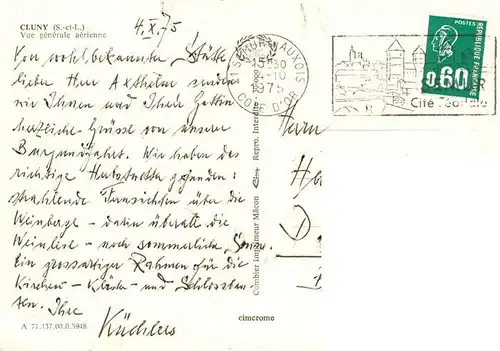 CLUNY (S.-et-L.)
Vue générale aérienne
4.X.75
Von wohlbekannter Stätte
lieber Herr Axthelm senden
wir Ihnen und Ihrer Gattin
herzliche Grüsse von unserer
Burgundfahrt. Wir haben das
richtige Herbstwetter gefunden:
strahlende Fernsichten über die
Weinberge – darin überall die
Weinlese – noch sommerliche Sonne.
Ein grossartiger Rahmen für die
Kirchen- Kloster- und Schlossbau-
ten. Ihre
Küchlers
A 71.137.00.0.5948
Combier Imprimeur Mâcon
Repro. Interdite
cimcrome
SEMUR EN AUXOIS
COTE D'OR
Cité Féodale
POSTES
REPUBLIQUE FRANÇAISE
0,60
Herrn